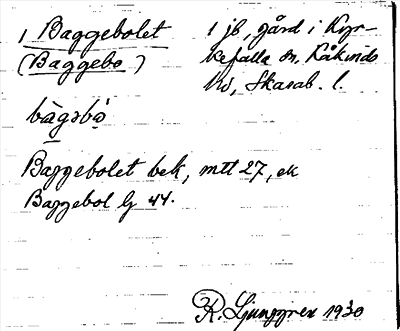 1 Baggebolet
(Baggebo)
1 jb, gård i Kyr-
kefalla sn, Kåkinds
hd, Skarab. l.
bàgəbò
Baggebolet bek, mtt 27, ek
Baggebol G 44.
R. Ljunggren 1930